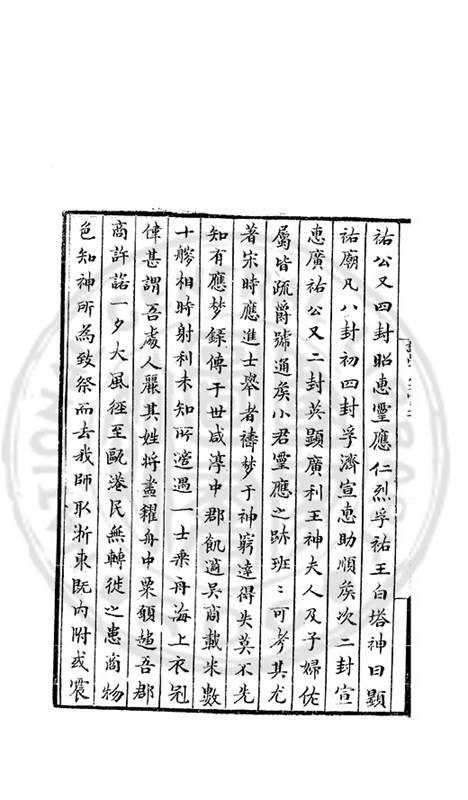 祐公又四封昭惠靈應仁烈孚祐王白塔神曰顯
祐廟凡八封初四封孚濟宣惠助順矦次二封宣
惠廣祐公又二封英顯廣利王神夫人及子婦佐
屬皆疏爵號通矦小君靈應之跡班〻可考其尤
著宋時應進士舉者禱梦于神窮達得失莫不先
知有應梦録傳于世咸淳中郡飢適吴商載米數
十艘相時射利未知所適遇一士乘舟海上衣冠
偉甚謂吾處人麗其姓將盡糴舟中粟願趨吾郡
商許諾一夕大風徑至甌港民無轉徙之患商物
色知神所為致祭而去我師取浙東既内附或震